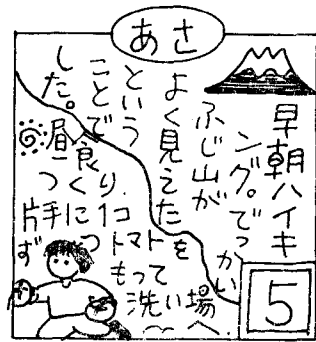 あさ
早朝ハイキ
ング。でっかい
ふじ山が
よく見えた
という
ことで
した。
片手に1コ
ずつ
トマトを
もって
洗い場へ
5